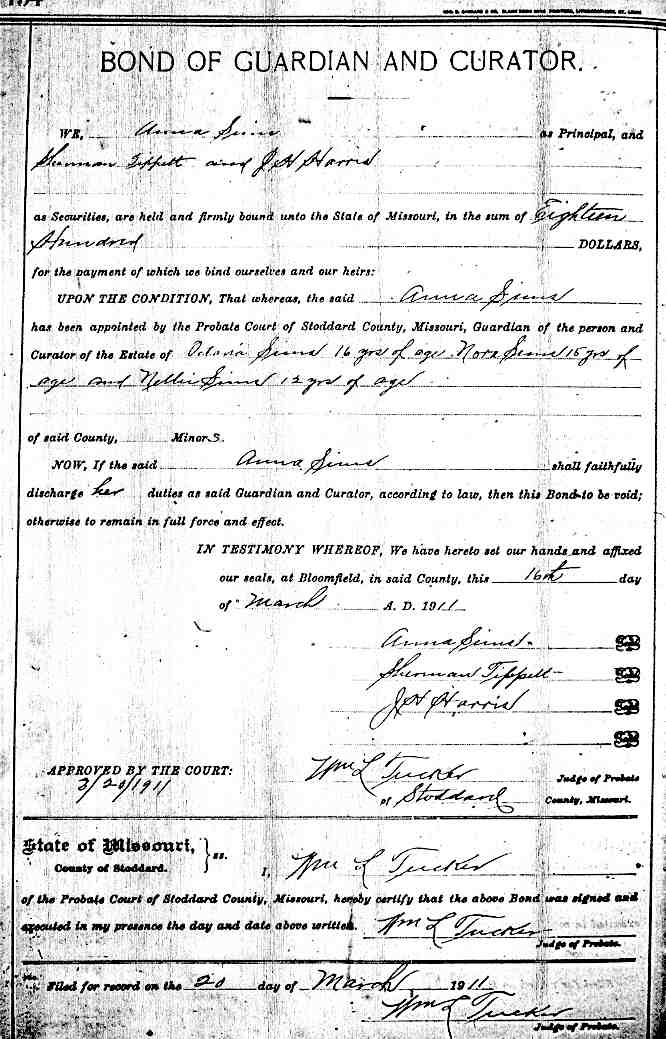 BOND OF GUARDIAN AND CURATOR.
WE, Anna Sims as Principal, and
Sherman Tippett and J H Harris
as Securities, are held and firmly bound unto the State of Missouri, in the sum of Eighteen
Hundred DOLLARS,
for the payment of which we bind ourselves and our heirs:
UPON THE CONDITION, That whereas, the said Anna Sims
has been appointed by the Probate Court of Stoddard County, Missouri, Guardian of the person and
Curator of the Estate of Octavia Sims 16 yrs of age Nora Sims 15 yrs of
age and Nellie Sims 12 yrs of age
of said County, Minors.
NOW, If the said Anna Sims shall faithfully
discharge her duties as said Guardian and Curator, according to law, then this Bond to be void;
otherwise to remain in full force and effect.
IN TESTIMONY WHEREOF, We have hereto set our hands and affixed
our seals, at Bloomfield, in said County, this 16th day
of March A. D. 1911
Anna Sims
Sherman Tippett
J H Harris
APPROVED BY THE COURT: Wm L Tucker Judge of Probate
3/20/1911 of Stoddard County, Missouri.
State of Missouri, } ss.
County of Stoddard. I, Wm L Tucker
of the Probate Court of Stoddard County, Missouri, hereby certify that the above Bond was signed and
executed in my presence the day and date above written. Wm L Tucker
Judge of Probate.
Filed for record on the 20 day of March 1911
Wm L Tucker
Judge of Probate.